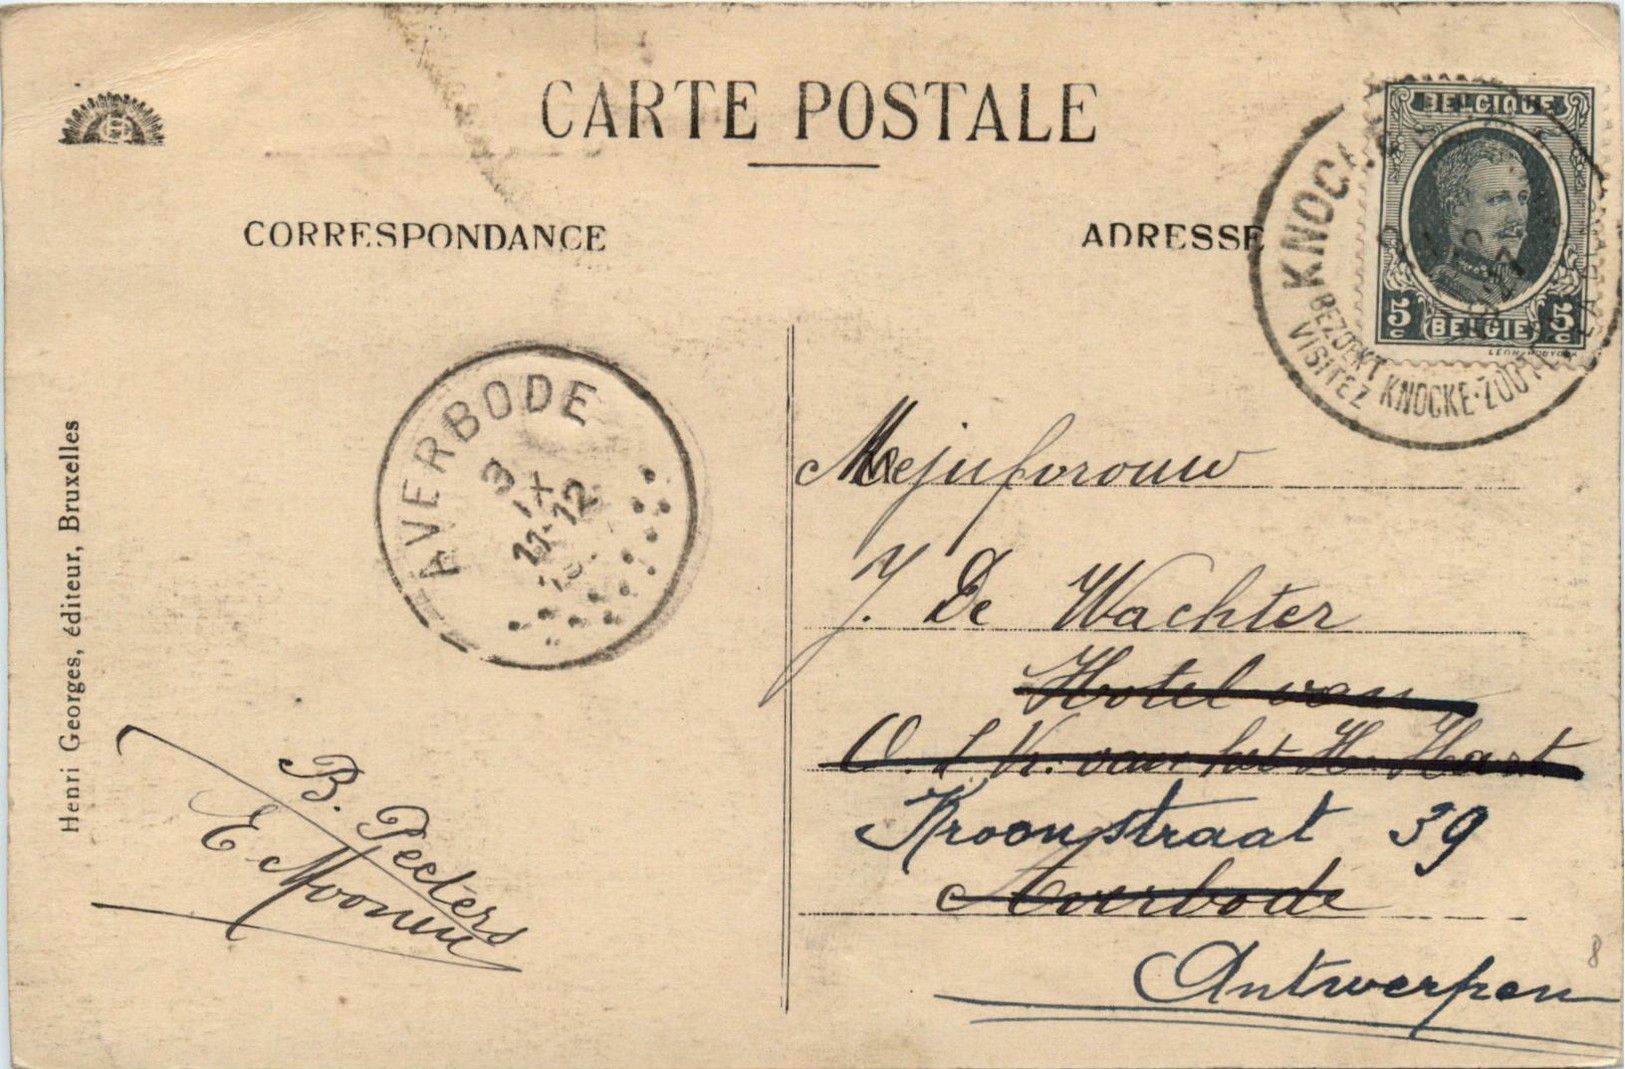 CARTE POSTALE
CORRESPONDANCE
ADRESSE
BELGIQUE
5c 5c
BELGIË
KNOCK
BEZOEKT KNOCKE-ZOUTE
VISITEZ
AVERBODE
3
IX
11-12
Henri Georges, éditeur, Bruxelles
Mejufvrouw
J. De Wachter
Hotel van
O. L. Vr. van het H. Hart
Kroonstraat 39
Averbode
Antwerpen
B. Peeters
8